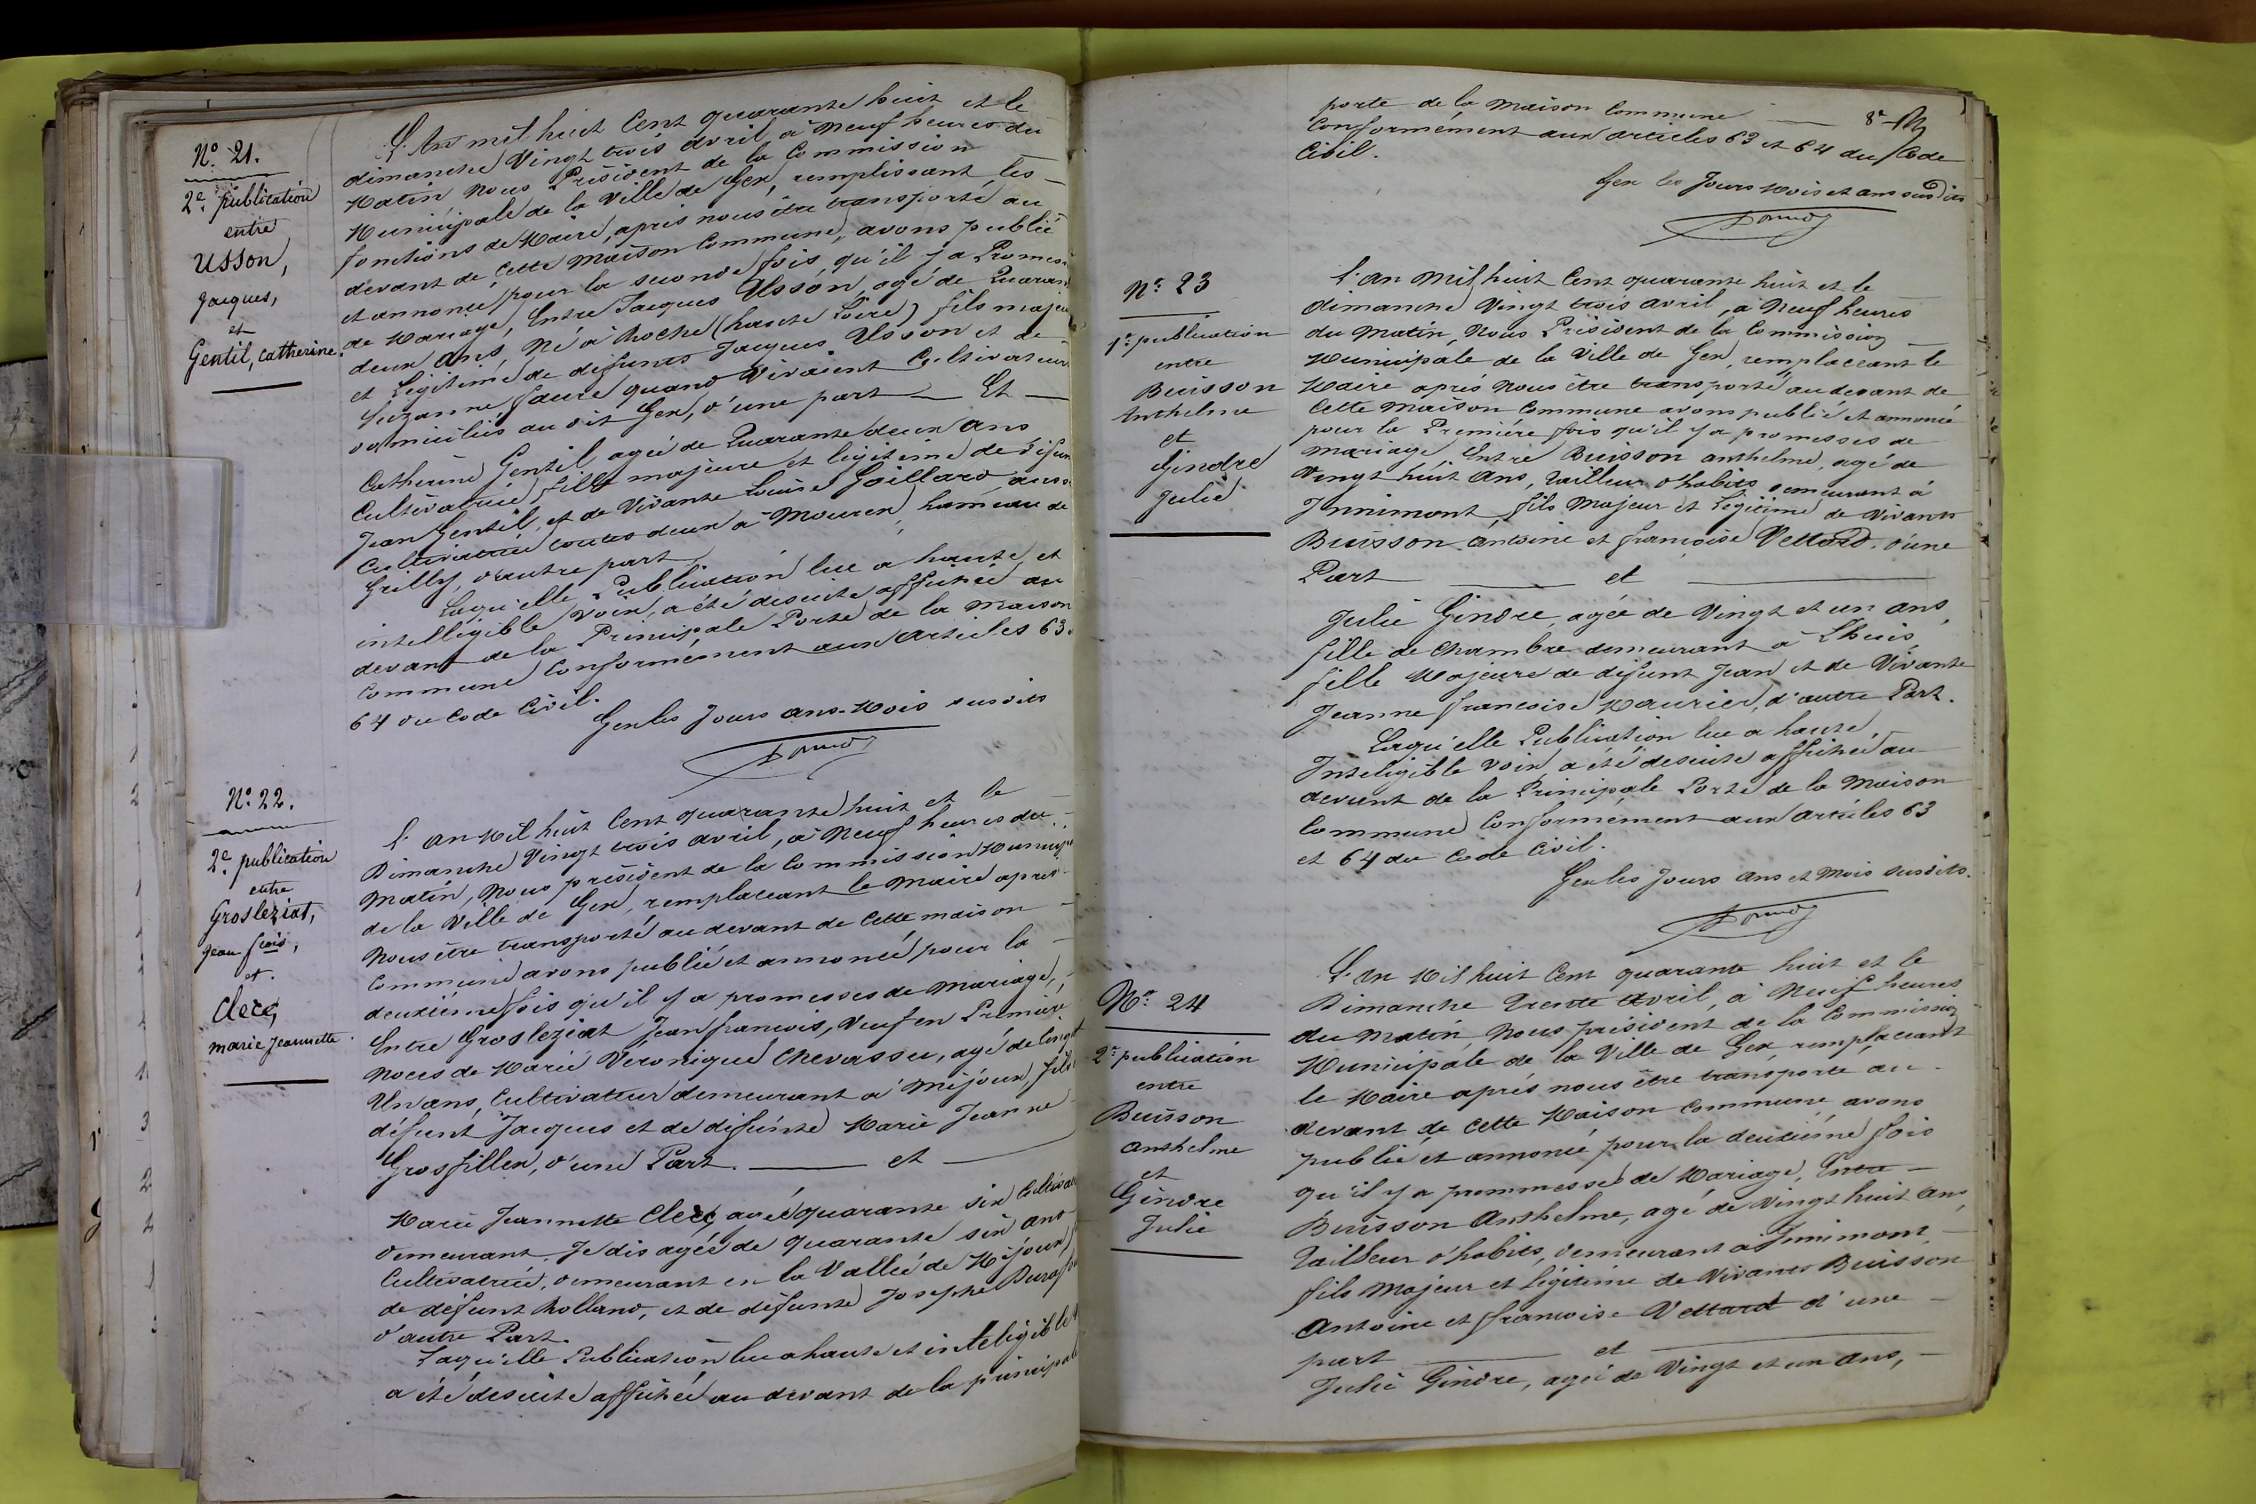 N° 21.
2e. publication
entre
Usson,
Jacques,
et
Gentil, Catherine.
L'An mil huit Cent quarante huit et le
dimanche Vingt trois avril, à Neuf heures du
Matin, Nous Président de la Commission
Municipale de la Ville de Gex, remplissant les
fonctions de Maire, après nous être transporté au
devant de cette Maison Commune, avons publié
et annoncé pour la seconde fois, qu'il y a Promes
de Mariage, Entre Jacques Usson, agé de Quaran
deux ans, Né à Roche (haute Loire) fils majeu
et Légitime de défunts Jacques Usson et de
Suzanne faure quand vivaient Cultivateurs
domiciliés au dit Gex, d'une part — Et —
Catherine Gentil agée de Quarante deux ans
Cultivatrice, fille majeure et légitime de défun
Jean Gentil, et de Vivante Louise Gaillard, auss
Cultivatrice toutes deux à Mourex, hameau de
Grilly, d'autre part.
Laqu'elle Publication lue a haute et
intelligible voix, a été desuite affichée au
devant de la Principale Porte de la Maison
Commune Conformément aux Articles 63
64 du Code Civil.
Gex les Jours ans-Mois susdits
N° 22.
2e. publication
entre
Grosleziat,
Jean fcois,
et.
Clerc,
Marie Jeannette.
L'an Mil huit Cent quarante huit et le
Dimanche Vingt trois avril, à Neuf heures du
Matin, Nous président de la Commission Municip
de la Ville de Gex, remplaceant le Maire apres
Nous être transporté au devant de Cette maison
Commune avons publié et annoncé pour la
deuxième fois qu'il y a promesses de Mariage,
Entre Grosleziat Jean francois, Veuf en Première
Noces de Marie Veronique Chevassu, agé de Cinqt
Un ans, Cultivateur demeurant a Mijoux, fils
défunt Jacques et de defunte Marie Jeanne
Grosfillex, d'une Part. — et —
Marie Jeannette Clerc, agée quarante six Cultivat
demeurant, Je dis agée de quarante six ans
Cultivatrice, demeurant en la Vallée de Mijoux,
de défunt Rolland, et de défunte Josephe
d'autre Part.
Laqu'elle Publication lue a haute et inteligible
a été desuite affichée au devant de la principale
porte de la Maison Commune — 8e
Conformément aux articles 63 et 64 du Code
Civil.
Gex les Jours Mois et ans susdits
N° 23
1e. publication
entre
Buisson
Anthelme
et
Gindre
Julie
L'an Mil huit Cent quarante huit et le
dimanche Vingt trois avril, à Neuf heures
du Matin, Nous Président de la Commission
Municipale de la Ville de Gex, remplaceant le
Maire après Nous être transporté au devant de
Cette Maison Commune avons publié et annoncé
pour la Première fois qu'il y a promesses de
mariage Entre Buisson anthelme, agé de
Vingt huit ans, tailleur d'habits demeurant à
Innimont, fils Majeur et Légitime de Vivants
Buisson Antoine et françoise Vettard. d'une
Part — et —
Julie Gindre, agée de Vingt et un ans,
fille de Chambre demeurant à Lhuis,
fille Majeure de défunt Jean et de Vivante
Jeanne francoise Maurier, d'autre Part.
Laqu'elle Publication lue a haute
Inteligible Voix, a été desuite affichée au
devant de la Principale Porte de la Maison
Commune Conformément aux articles 63
et 64 du Code Civil.
Gex les Jours ans et Mois susdits.
N° 24
2e publication
entre
Buisson
anthelme
et
Gindre
Julie
L'An Mil huit Cent quarante huit et le
Dimanche Trente Avril, à Neuf heures
du Matin, Nous président de la Commission
Municipale de la Ville de Gex, remplaceant
le Maire aprés nous être transporté au
devant de Cette Maison Commune avons
publié et annoncé pour la deuxième fois
qu'il y a prommesses de Mariage, Entre —
Buisson Anthelme, agé de Vingt huit ans,
Tailleur d'habits, demeurant à Innimont,
fils Majeur et légitime de Vivants Buisson
Antoine et francoise Vettard d'une —
part — et —
Julie Gindre, agée de Vingt et un ans, —